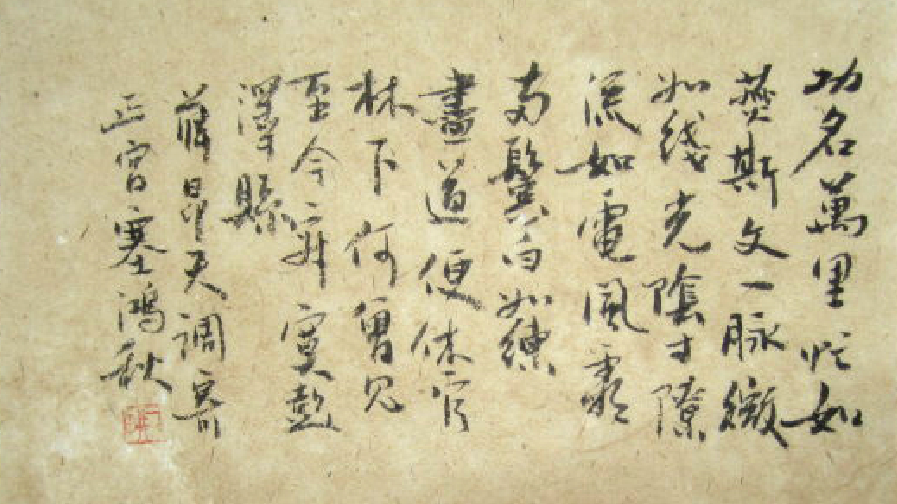 功名萬里忙如
燕斯文一脉微
如綫光陰寸隙
流如電風霜
两鬢白如練
盡道便休官
林下何曾見
至今寂寞彭
澤縣
薛昂夫調寄
正宫塞鴻秋